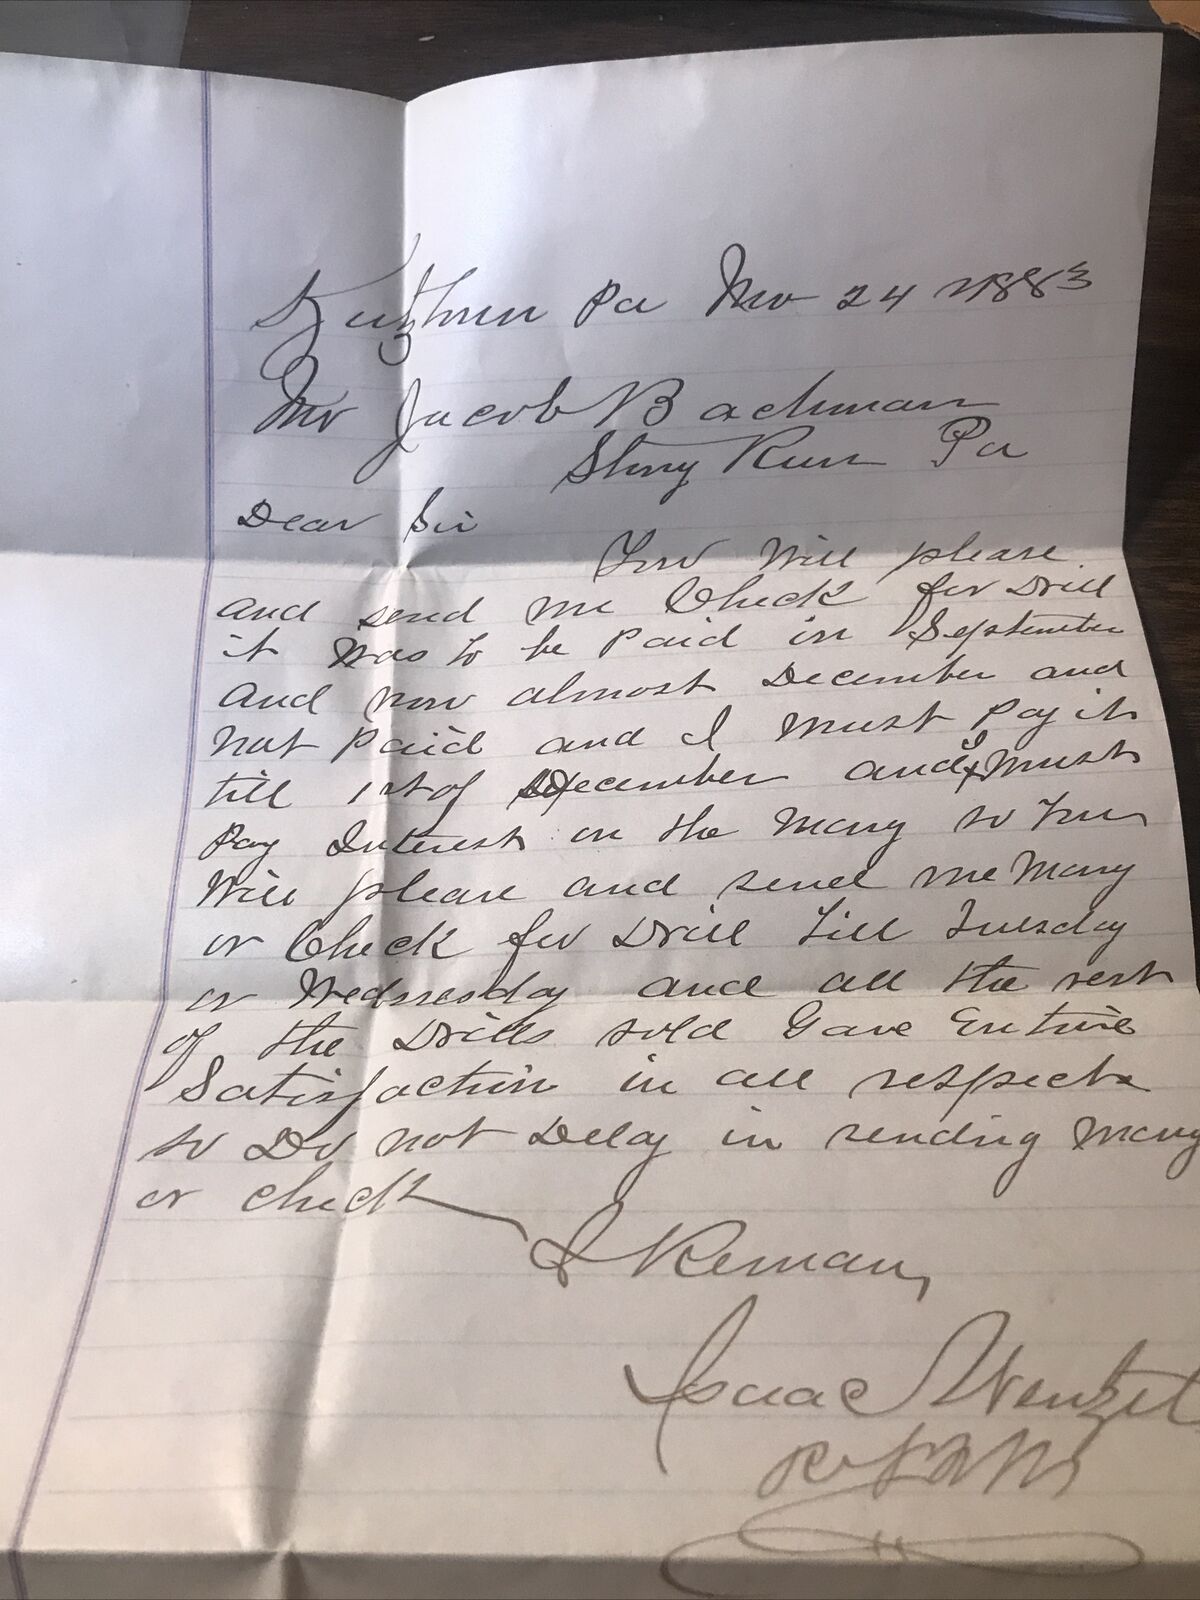 Kutztown Pa Nov 24 1883
Mr Jacob Bachman
Stony Run Pa
Dear Sir
You Will please
and send me Check for Drill
it Was to be Paid in September
and now almost December and
not Paid and I must Pay it
till 1st of December and I must
Pay Interest on the Mony so You
Will please and send me Mony
or Check for Drill Till Tuesday
or Wednesday and all the rest
of the Drills sold Gave Entire
Satisfaction in all respects
so Do not Delay in sending Mony
or check
I Remain,
Isaac Wenzel